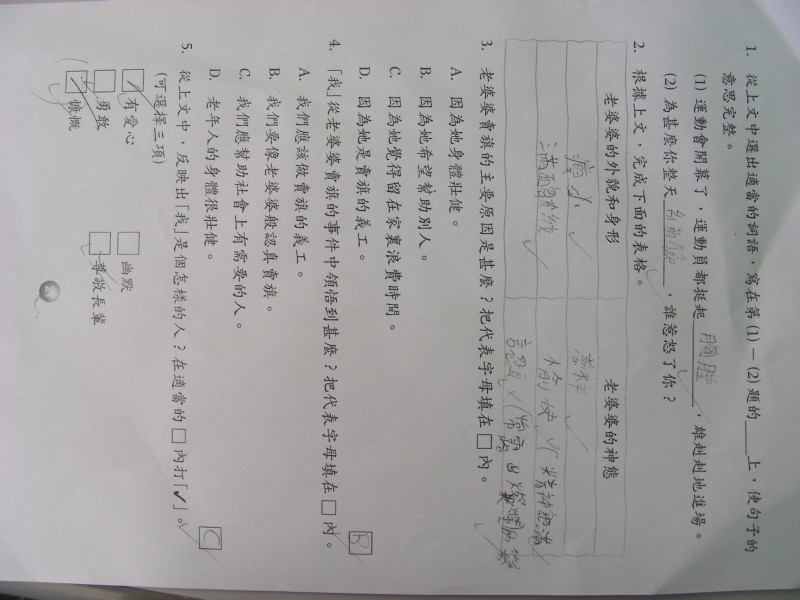 1. 從上文中選出適當的詞語，寫在第(1)－(2)題的____上，使句子的
意思完整。
(1) 運動會開幕了，運動員都挺起 胸膛 ，雄赳赳地進場。
(2) 為甚麼你整天 ，誰惹怒了你？
2. 根據上文，完成下面的表格。
老婆婆的外貌和身形 老婆婆的神態
瘦小
滿面皺紋 愉快 精神飽滿
3. 老婆婆賣旗的主要原因是甚麼？把代表字母填在□內。
A. 因為她身體壯健。
B. 因為她希望幫助別人。
C. 因為她覺得留在家裏浪費時間。
D. 因為她是賣旗的義工。
B
4. 「我」從老婆婆賣旗的事件中領悟到甚麼？把代表字母填在□內。
A. 我們應該做賣旗的義工。
B. 我們要像老婆婆般認真賣旗。
C. 我們應幫助社會上有需要的人。
D. 老年人的身體很壯健。
C
5. 從上文中，反映出「我」是個怎樣的人？在適當的□內打「✓」。
(可選擇三項)
有愛心 幽默
勇敢 尊敬長輩
慷慨